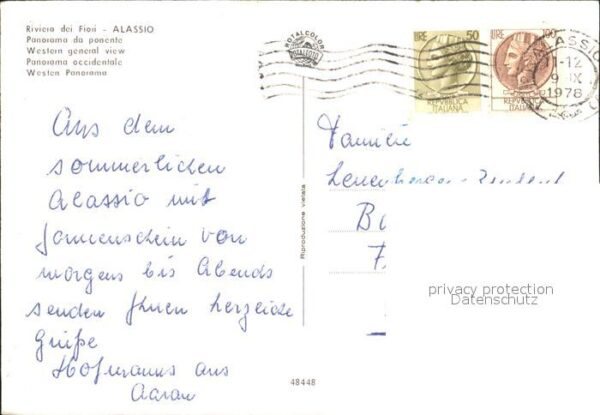 Riviera dei Fiori - ALASSIO
Panorama da ponente
Western general view
Panorama occidentale
Westen Panorama
Aus dem
sommerlichen
Alassio mit
Sonnenschein von
morgens bis Abends
senden Ihnen herzliche
Grüße
Hofmanns aus
Aarau
ROTALCOLOR
ROTALFOTO
LIRE 50
REPVBBLICA
ITALIANA
LIRE 100
REPVBBLICA
ITALIANA
ALASSIO
11-12
9 IX
1978
Riproduzione vietata
Familie
privacy protection
Datenschutz
48448